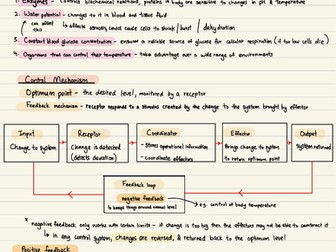 1. Enzymes - controls biochemical reactions, proteins in body are sensitive to changes in pH & temperature
2. Water potential - changes to it in blood and tissue fluid
↳ can affect this → to affects osmosis/could cause cells to shrink/burst / dehydration
3. Constant blood glucose concentration - ensures a reliable source of glucose for cellular respiration (if too low cells die)
4. Organisms that can control their temperature - take advantage over a wide range of environments
Control Mechanism
Optimum point - the desired level, monitored by a receptor
Feedback mechanism - receptor responds to a stimulus created by the change to the system brought by effector
Input
Change to system
Receptor
Change is detected
(detects deviation)
Coordinator
- Stores operational information
- Coordinate effectors
Effector
Brings change to system
to return optimum point
Output
System returned
Feedback loop
negative feedback
↳ keeps things around normal level
→ e.g. control of body temperature
* negative feedback only works with certain limits - if change is too big then the effectors may not be able to counteract it
↳ in any control system, changes are reversed, & returned back to the optimum level
Positive feedback